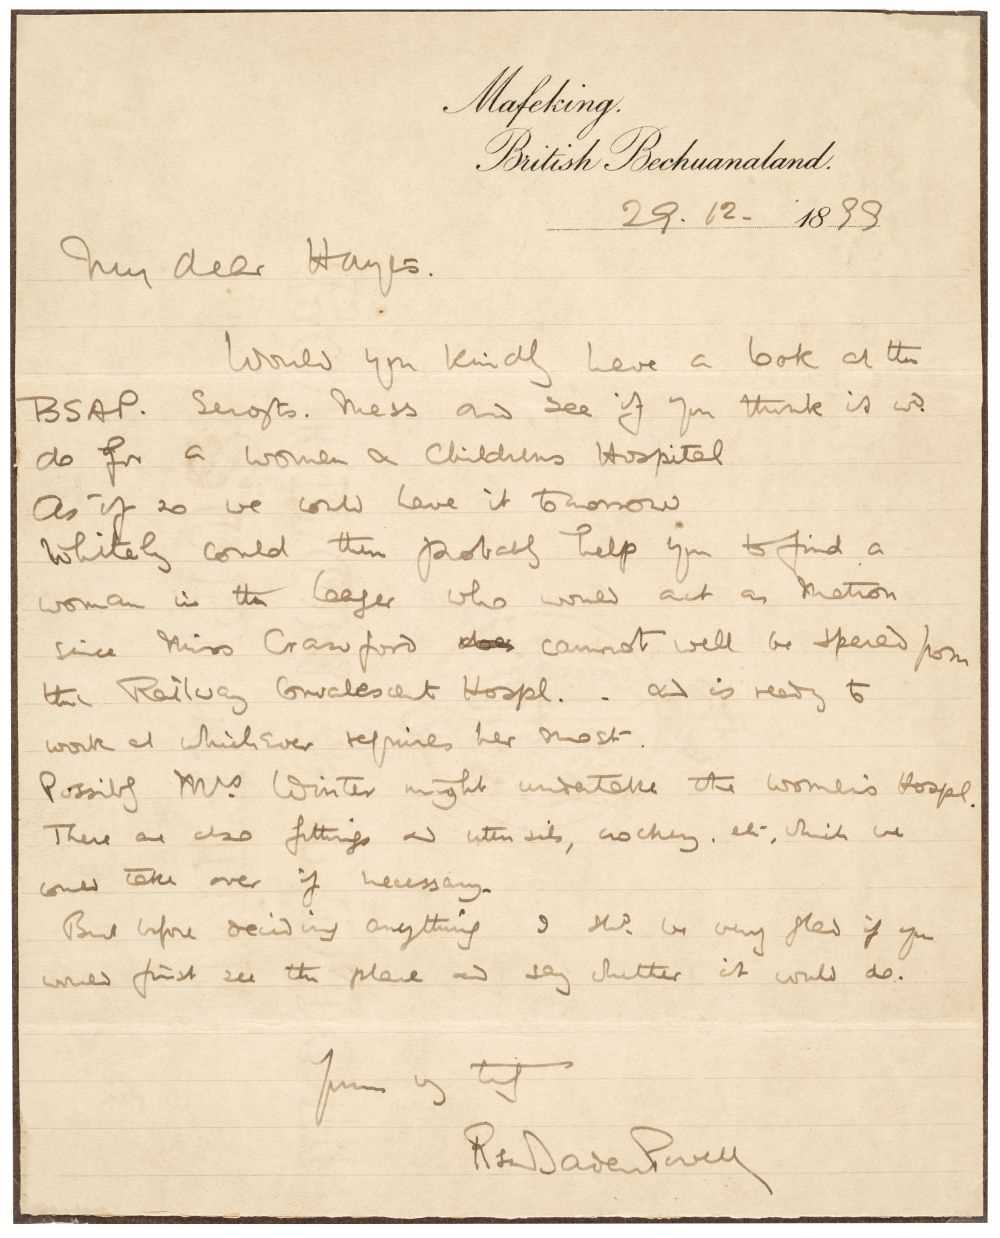 Mafeking.
British Bechuanaland.
29. 12. 1899
My dear Hayes.
Would you kindly have a look at the
BSAP. Sergts. Mess and see if you think it wd.
do for a women & childrens Hospital
As if so we could have it tomorrow
Whitely could then probably help you to find a
woman in the laager who would act as Matron
since Miss Crawford does cannot well be spared from
the Railway Convalescent Hospl. - and is ready to
work at whichever requires her most.
Possibly Mrs Winter might undertake the women's Hospl.
There are also fittings and utensils, crockery, etc, which we
could take over if necessary.
But before deciding anything I shd. be very glad if you
would first see the place and say whether it would do.
Yours vy try
RSS Baden Powell